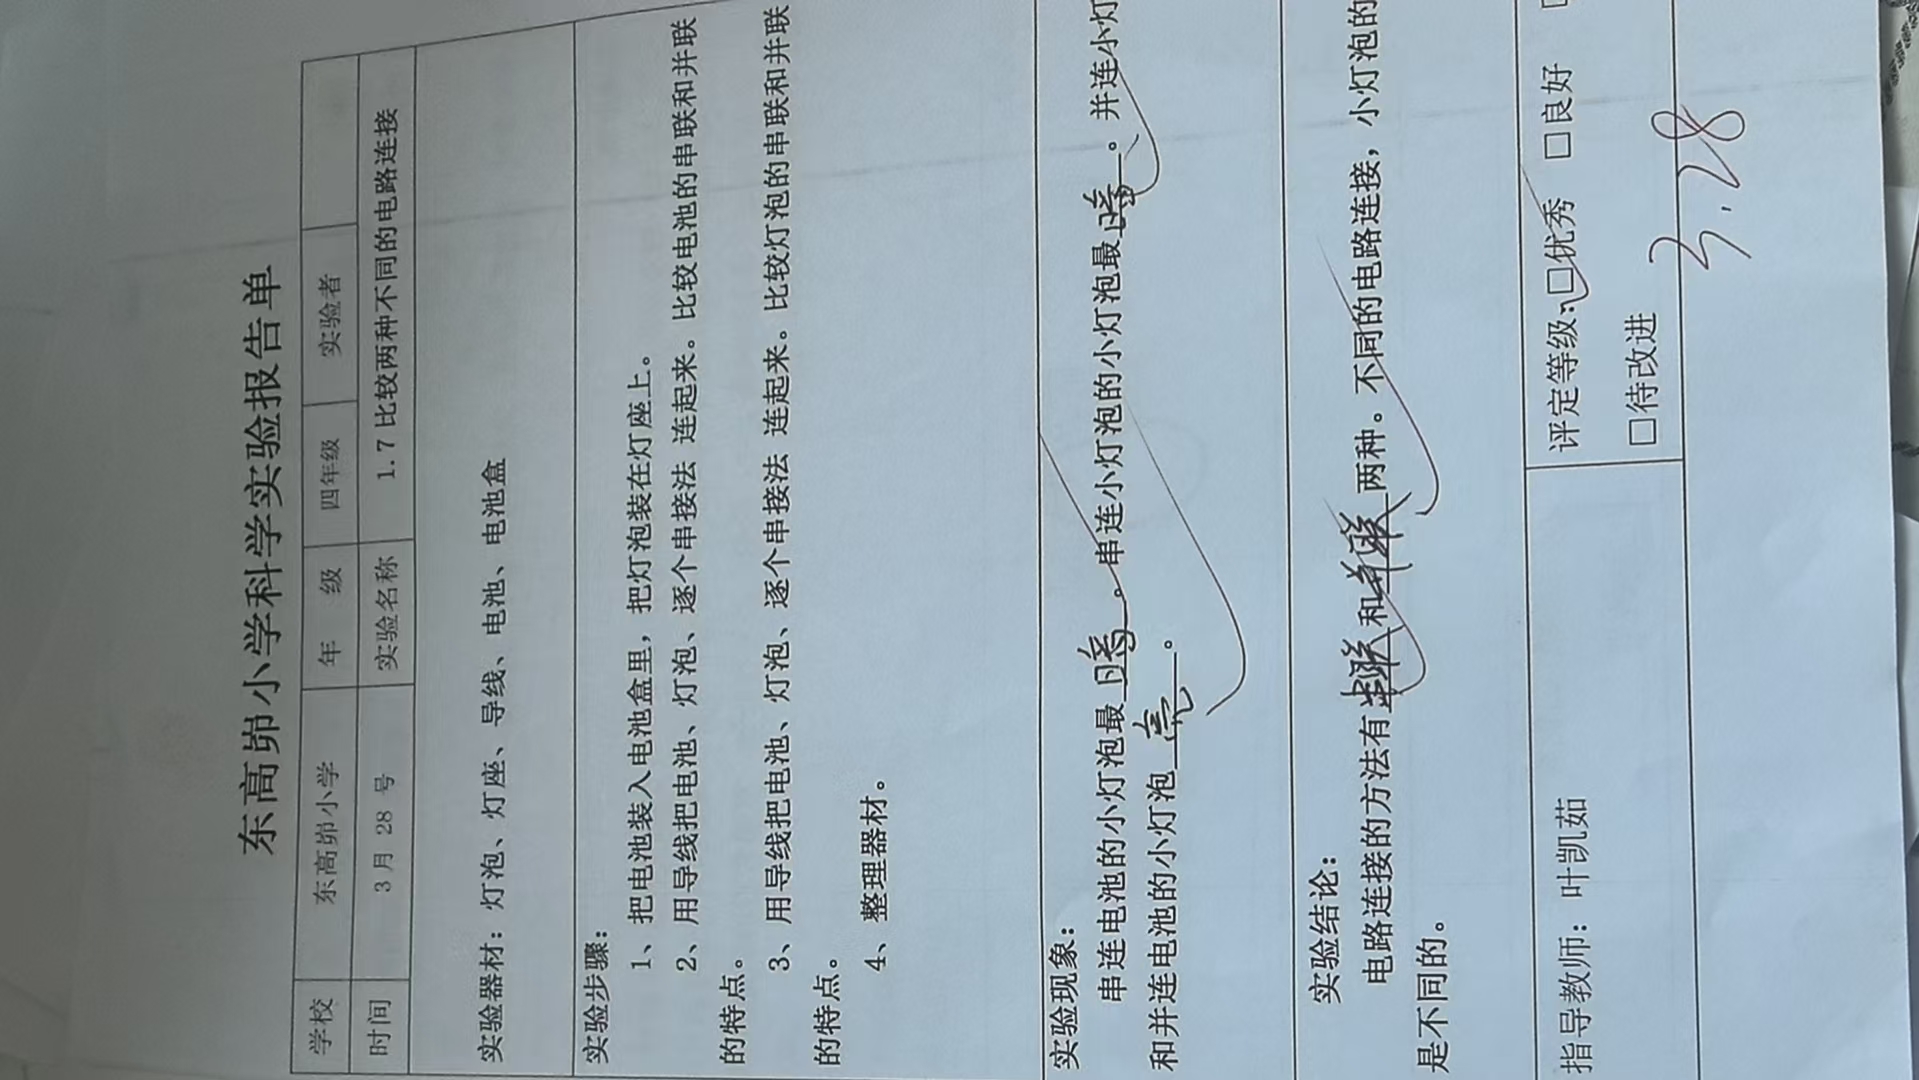 东高峁小学科学实验报告单
学校 东高峁小学 年 级 四年级 实验者
时间 3月28号 实验名称 1.7比较两种不同的电路连接
实验器材：灯泡、灯座、导线、电池、电池盒
实验步骤：
1、把电池装入电池盒里，把灯泡装在灯座上。
2、用导线把电池、灯泡、逐个串接法 连起来。比较电池的串联和并联
的特点。
3、用导线把电池、灯泡、逐个串接法 连起来。比较灯泡的串联和并联
的特点。
4、整理器材。
实验现象：
串连电池的小灯泡最 。串连小灯泡的小灯泡最 。并连小灯
和并连电池的小灯泡亮。
实验结论：
电路连接的方法有串联和并联两种。不同的电路连接，小灯泡的
是不同的。
指导教师：叶凯茹 评定等级：□优秀 □良好
□待改进
3.28